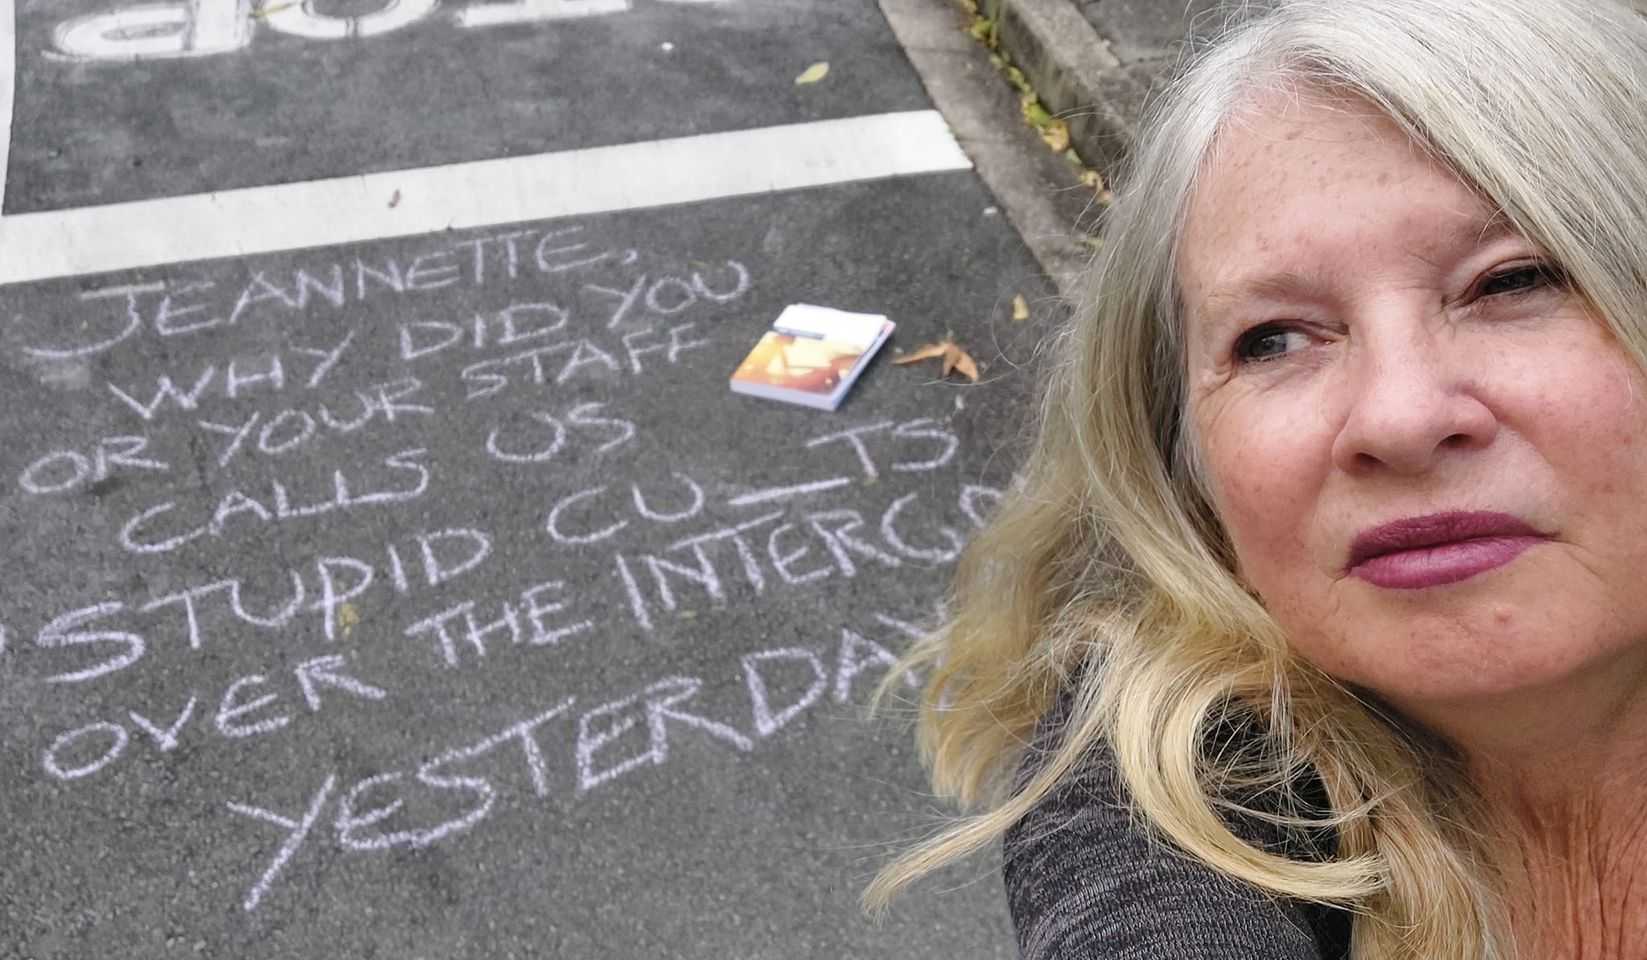 JEANNETTE,
WHY DID YOU
OR YOUR STAFF
CALLS US
STUPID CU__TS
OVER THE INTERCO
YESTERDAY